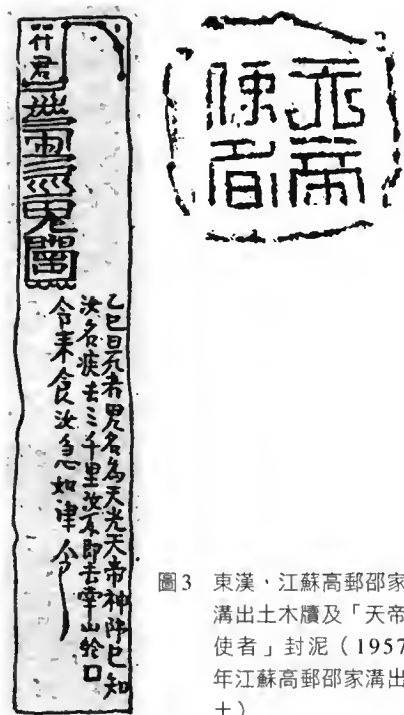 符君
乙巳日死者鬼名為天光天帝神師已知
汝名疾去三千里汝不即去 山給口
令來食汝急如律令
天帝
使者
圖3 東漢，江蘇高郵邵家
溝出土木牘及「天帝
使者」封泥（1957
年江蘇高郵邵家溝出
土）